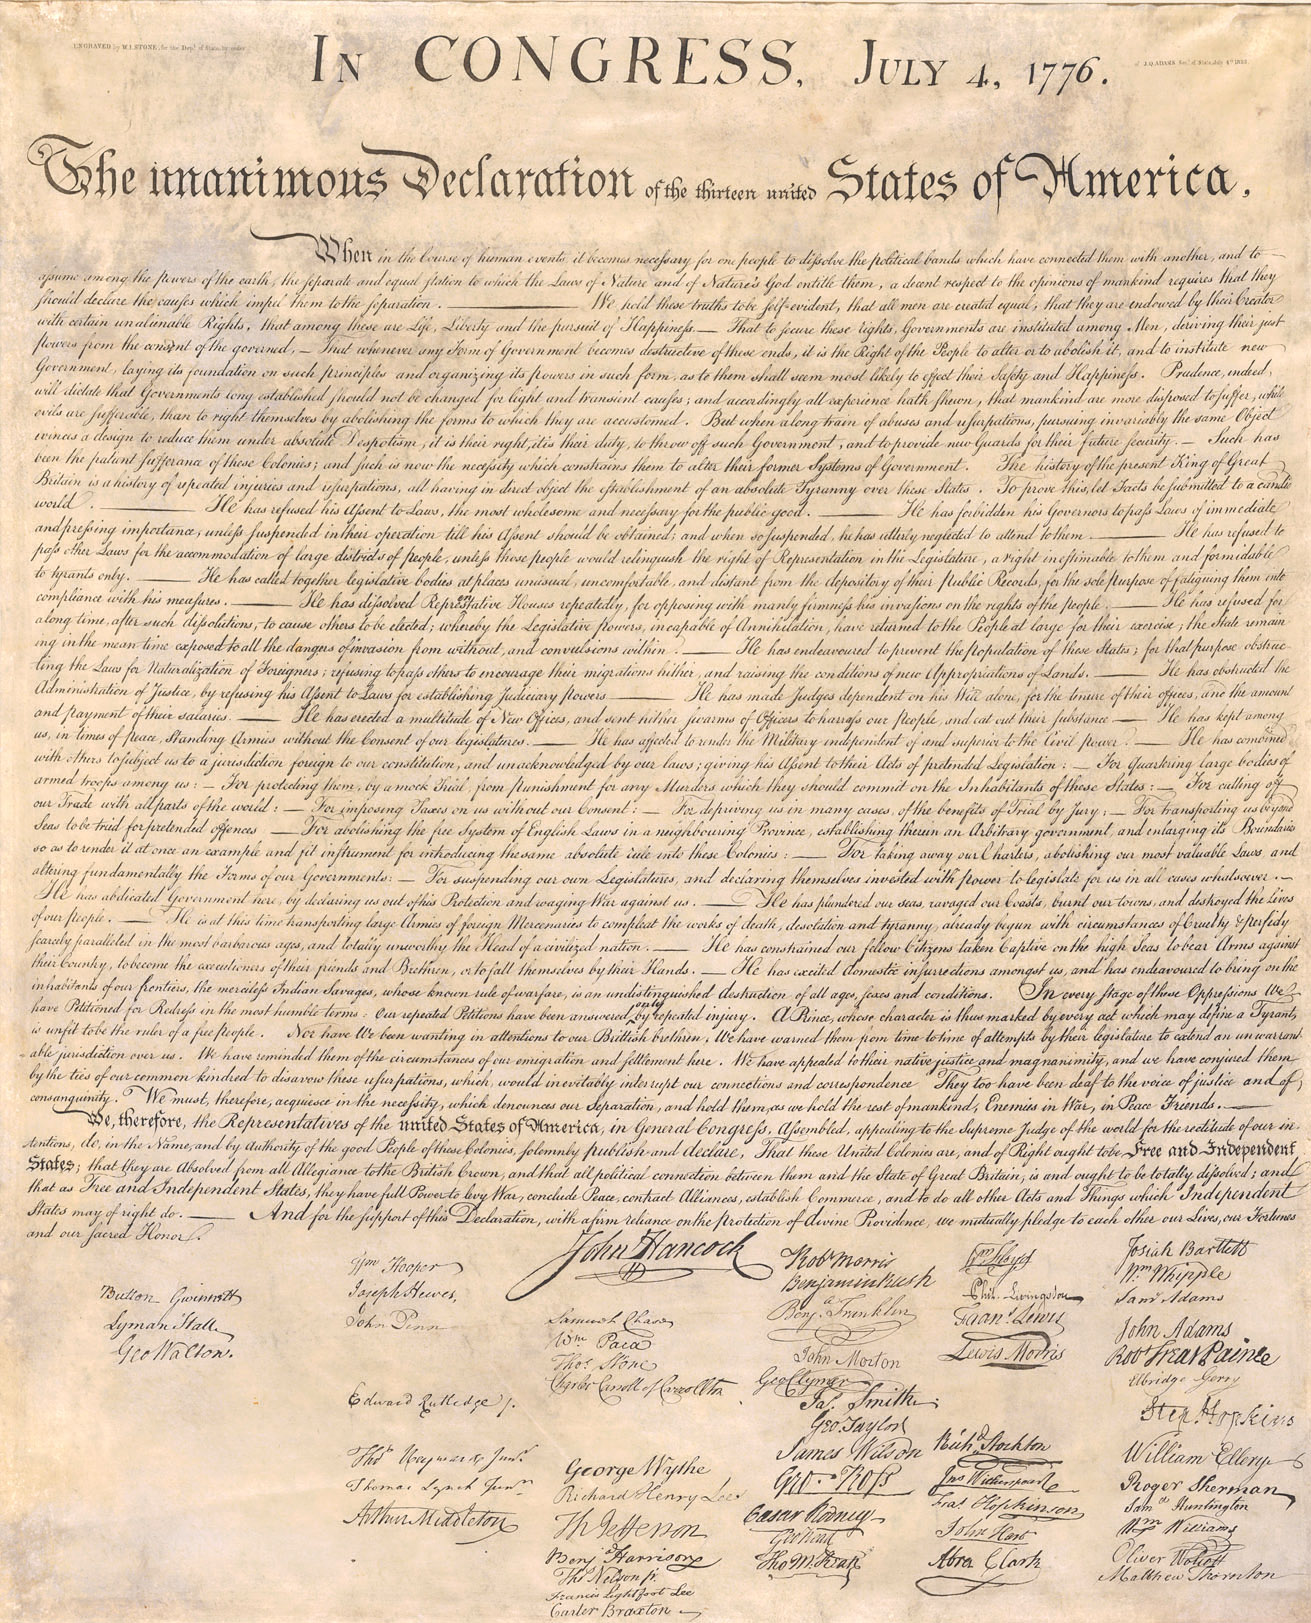 ENGRAVED by W.I.STONE, for the Dept. of State, by order
of J.Q.ADAMS Secy. of State, July 4th 1823.
IN CONGRESS, JULY 4, 1776.
The unanimous Declaration of the thirteen united States of America,
When in the Course of human events, it becomes necessary for one people to dissolve the political bands which have connected them with another, and to
assume among the powers of the earth, the separate and equal station to which the Laws of Nature and of Nature's God entitle them, a decent respect to the opinions of mankind requires that they
should declare the causes which impel them to the separation. — We hold these truths to be self-evident, that all men are created equal, that they are endowed by their Creator
with certain unalienable Rights, that among these are Life, Liberty and the pursuit of Happiness.— That to secure these rights, Governments are instituted among Men, deriving their just
powers from the consent of the governed, — That whenever any Form of Government becomes destructive of these ends, it is the Right of the People to alter or to abolish it, and to institute new
Government, laying its foundation on such principles and organizing its powers in such form, as to them shall seem most likely to effect their Safety and Happiness. Prudence, indeed,
will dictate that Governments long established should not be changed for light and transient causes; and accordingly all experience hath shewn, that mankind are more disposed to suffer, while
evils are sufferable, than to right themselves by abolishing the forms to which they are accustomed. But when a long train of abuses and usurpations, pursuing invariably the same Object
evinces a design to reduce them under absolute Despotism, it is their right, it is their duty, to throw off such Government, and to provide new Guards for their future security. — Such has
been the patient sufferance of these Colonies; and such is now the necessity which constrains them to alter their former Systems of Government. The history of the present King of Great
Britain is a history of repeated injuries and usurpations, all having in direct object the establishment of an absolute Tyranny over these States. To prove this, let Facts be submitted to a candid
world. — He has refused his Assent to Laws, the most wholesome and necessary for the public good. — He has forbidden his Governors to pass Laws of immediate
and pressing importance, unless suspended in their operation till his Assent should be obtained; and when so suspended, he has utterly neglected to attend to them. — He has refused to
pass other Laws for the accommodation of large districts of people, unless those people would relinquish the right of Representation in the Legislature, a right inestimable to them and formidable
to tyrants only. — He has called together legislative bodies at places unusual, uncomfortable, and distant from the depository of their Public Records, for the sole purpose of fatiguing them into
compliance with his measures. — He has dissolved Representative Houses repeatedly, for opposing with manly firmness his invasions on the rights of the people. — He has refused for
a long time, after such dissolutions, to cause others to be elected; whereby the Legislative powers, incapable of Annihilation, have returned to the People at large for their exercise; the State remain
ing in the mean time exposed to all the dangers of invasion from without, and convulsions within. — He has endeavoured to prevent the Population of these States; for that purpose obstruc-
ting the Laws for Naturalization of Foreigners; refusing to pass others to encourage their migrations hither, and raising the conditions of new Appropriations of Lands. — He has obstructed the
Administration of Justice, by refusing his Assent to Laws for establishing Judiciary powers — He has made Judges dependent on his Will alone, for the tenure of their offices, and the amount
and payment of their salaries. — He has erected a multitude of New Offices, and sent hither swarms of Officers to harrass our people, and eat out their substance — He has kept among
us, in times of peace, Standing Armies without the Consent of our legislatures. — He has affected to render the Military independent of and superior to the Civil power. — He has combined
with others to subject us to a jurisdiction foreign to our constitution, and unacknowledged by our laws; giving his Assent to their Acts of pretended Legislation: — For Quartering large bodies of
armed troops among us: — For protecting them, by a mock Trial, from punishment for any Murders which they should commit on the Inhabitants of these States: — For cutting off
our Trade with all parts of the world: — For imposing Taxes on us without our Consent: — For depriving us in many cases, of the benefits of Trial by Jury: — For transporting us beyond
Seas to be tried for pretended offences — For abolishing the free System of English Laws in a neighbouring Province, establishing therein an Arbitrary government, and enlarging its Boundaries
so as to render it at once an example and fit instrument for introducing the same absolute rule into these Colonies: — For taking away our Charters, abolishing our most valuable Laws, and
altering fundamentally the Forms of our Governments: — For suspending our own Legislatures, and declaring themselves invested with power to legislate for us in all cases whatsoever. —
He has abdicated Government here, by declaring us out of his Protection and waging War against us. — He has plundered our seas, ravaged our Coasts, burnt our towns, and destroyed the lives
of our people. — He is at this time transporting large Armies of foreign Mercenaries to compleat the works of death, desolation and tyranny, already begun with circumstances of Cruelty & perfidy
scarcely paralleled in the most barbarous ages, and totally unworthy the Head of a civilized nation. — He has constrained our fellow Citizens taken Captive on the high Seas to bear Arms against
their Country, to become the executioners of their friends and Brethren, or to fall themselves by their Hands. — He has excited domestic insurrections amongst us, and has endeavoured to bring on the
inhabitants of our frontiers, the merciless Indian Savages, whose known rule of warfare, is an undistinguished destruction of all ages, sexes and conditions. In every stage of these Oppressions We
have Petitioned for Redress in the most humble terms: Our repeated Petitions have been answered only by repeated injury. A Prince, whose character is thus marked by every act which may define a Tyrant,
is unfit to be the ruler of a free people. Nor have We been wanting in attentions to our Brittish brethren. We have warned them from time to time of attempts by their legislature to extend an unwarrant
able jurisdiction over us. We have reminded them of the circumstances of our emigration and settlement here. We have appealed to their native justice and magnanimity, and we have conjured them
by the ties of our common kindred to disavow these usurpations, which, would inevitably interrupt our connections and correspondence They too have been deaf to the voice of justice and of
consanguinity. We must, therefore, acquiesce in the necessity, which denounces our Separation, and hold them, as we hold the rest of mankind, Enemies in War, in Peace Friends. —
We, therefore, the Representatives of the united States of America, in General Congress, Assembled, appealing to the Supreme Judge of the world for the rectitude of our in-
tentions, do, in the Name, and by Authority of the good People of these Colonies, solemnly publish and declare, That these United Colonies are, and of Right ought to be Free and Independent
States; that they are Absolved from all Allegiance to the British Crown, and that all political connection between them and the State of Great Britain, is and ought to be totally dissolved; and
that as Free and Independent States, they have full Power to levy War, conclude Peace, contract Alliances, establish Commerce, and to do all other Acts and Things which Independent
States may of right do. — And for the support of this Declaration, with a firm reliance on the protection of divine Providence, we mutually pledge to each other our Lives, our Fortunes
and our sacred Honor.
Button Gwinnett
Lyman Hall
Geo Walton.
Wm Hooper
Joseph Hewes,
John Penn
Edward Rutledge /.
Thos Heyward Junr.
Thomas Lynch Junr.
Arthur Middleton
John Hancock
Samuel Chase
Wm. Paca
Thos. Stone
Charles Carroll of Carrollton
George Wythe
Richard Henry Lee
Th Jefferson
Benj Harrison
Thos Nelson jr.
Francis Lightfoot Lee
Carter Braxton
Robt Morris
Benjamin Rush
Benja. Franklin
John Morton
Geo Clymer
Jas. Smith
Geo. Taylor
James Wilson
Geo. Ross
Caesar Rodney
Geo Read
Tho M:Kean
Wm Floyd
Phil. Livingston
Frans. Lewis
Lewis Morris
Richd. Stockton
Jno Witherspoon
Fras. Hopkinson
John Hart
Abra Clark
Josiah Bartlett
Wm. Whipple
Saml Adams
John Adams
Robt Treat Paine
Elbridge Gerry
Step. Hopkins
William Ellery
Roger Sherman
Saml Huntington
Wm Williams
Oliver Wolcott
Matthew Thornton